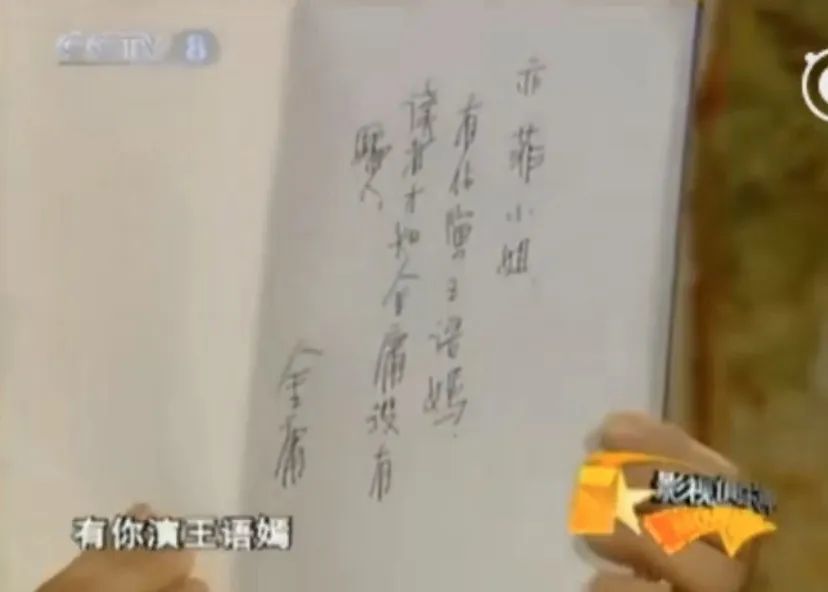 CCTV 8
亦菲小姐,
有你演王语嫣,
读者才知金庸没有
骗人
金庸
影视俱乐部
有你演王语嫣